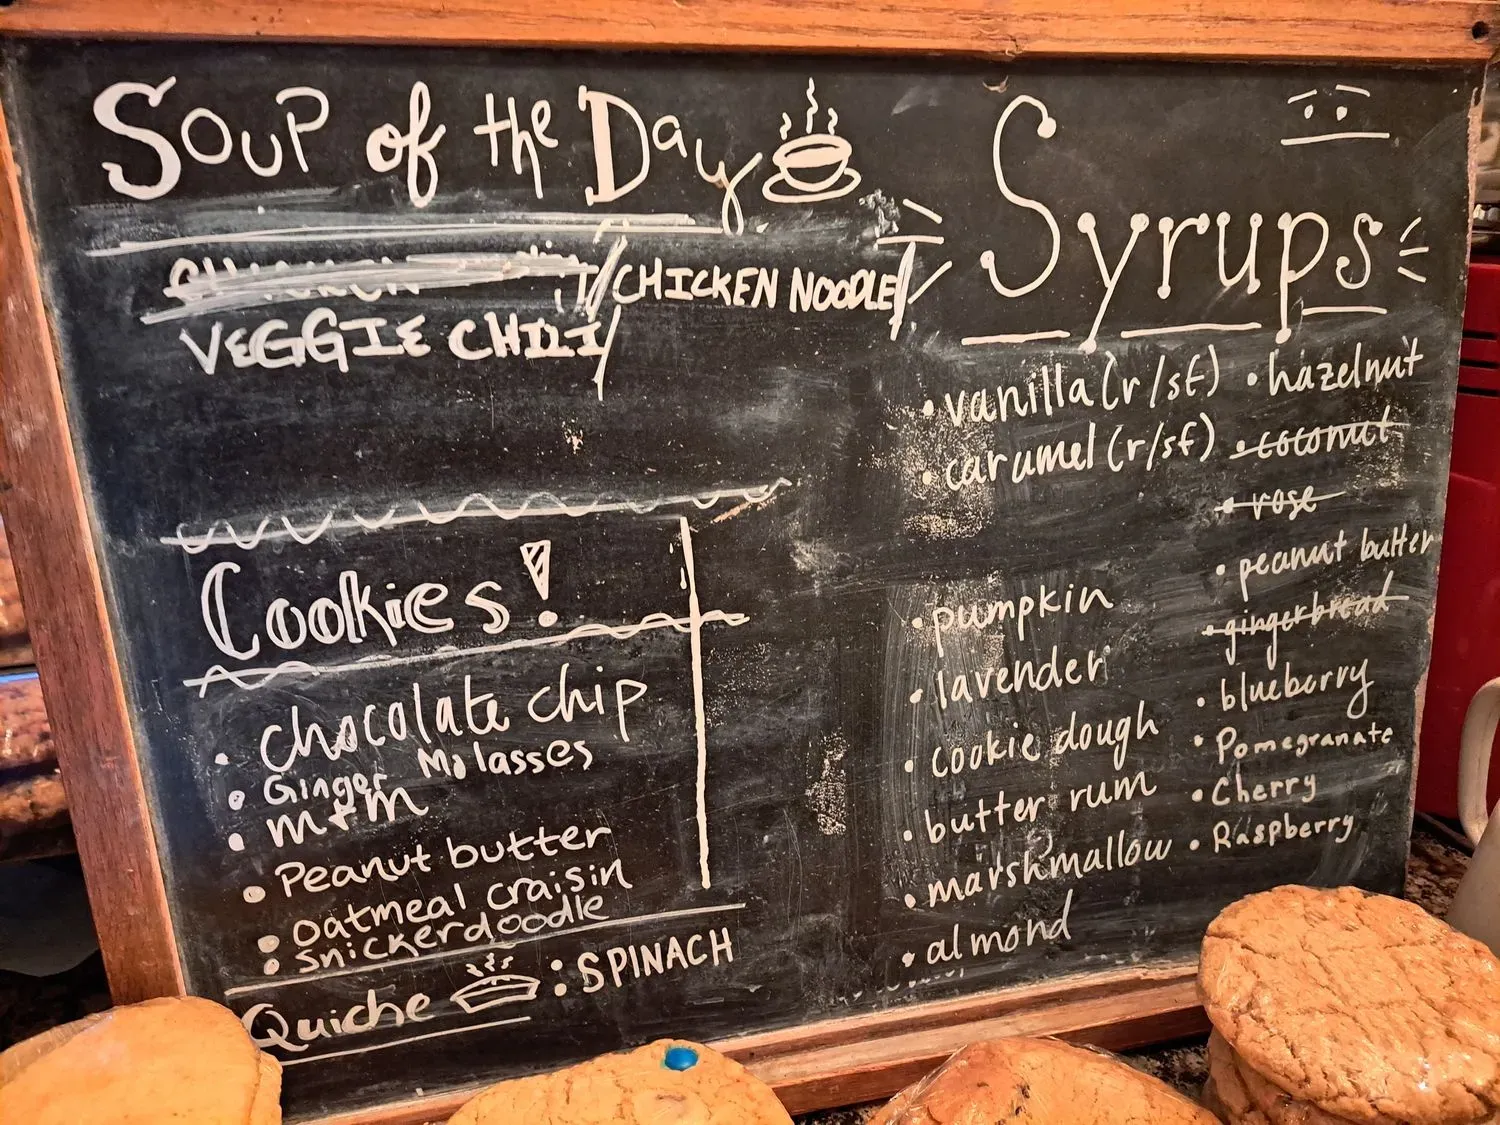 Soup of the Day
CHICKEN NOODLE
VEGGIE CHILI
Cookies!
• chocolate chip
• Ginger Molasses
• m+m
• Peanut butter
• oatmeal craisin
• snickerdoodle
Quiche : SPINACH
Syrups
• vanilla (r/sf)
• caramel (r/sf)
• pumpkin
• lavender
• cookie dough
• butter rum
• marshmallow
• almond
• hazelnut
• coconut
• rose
• peanut butter
• gingerbread
• blueberry
• Pomegranate
• Cherry
• Raspberry